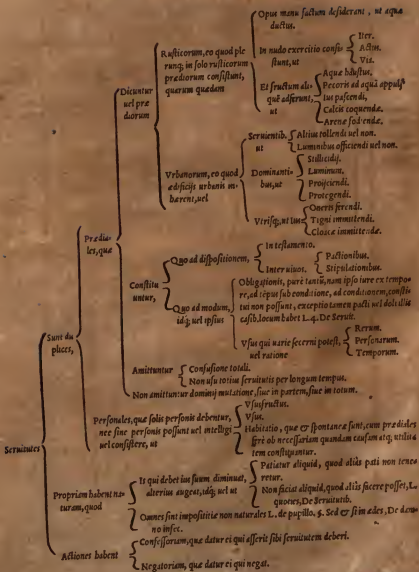 Opus manu factum desiderant, ut aquæ
ductus.
Rusticorum, eo quod ple
runq; in solo rusticorum
prædiorum consistunt,
quarum quædam
In nudo exercitio consi
stunt, ut
Iter.
Actus.
Via.
Et fructum ali-
quē adferunt,
ut
Aquæ haustus.
Pecoris ad aquā appuls⁹
Ius pascendi.
Calcis coquendæ.
Arenæ fodiendæ.
Dicuntur
uel præ
diorum
Vrbanorum, eo quod
ædificijs urbanis in-
hærent, uel
Seruientib.
ut
Altius tollendi uel non.
Luminibus officiendi uel non.
Dominanti-
bus, ut
Stillicidij.
Luminum.
Proijciendi.
Protegendi.
Vtrisq;, ut ius
Oneris ferendi.
Tigni immittendi.
Cloacæ immittendæ.
Prædia-
les, quæ
Constitu
untur,
Quo ad dispositionem,
In testamento.
Inter uiuos.
Pactionibus.
Stipulationibus.
Quo ad modum,
idq; uel ipsius
Obligationis, pure tantū, nam ipso iure ex tempo-
re, ad tēpus sub conditione, ad conditionem, consti
tui non possunt, exceptio tamen pacti uel doli illis
casib. locum habet L. 4. De Seruit.
Vsus qui uarie secerni potest,
uel ratione
Rerum.
Personarum.
Temporum.
Amittuntur
Confusione totali.
Non usu totius seruitutis per longum tempus.
Non amittuntur dominij mutatione, siue in partem, siue in totum.
Sunt du
plices,
Personales, quæ solis personis debentur,
nec sine personis possunt uel intelligi
uel consistere, ut
Vsusfructus.
Vsus.
Habitatio, quæ & spontaneæ sunt, cum prædiales
ferè ob necessariam quandam causam atq; utilita
tem constituantur.
Seruitutes
Propriam habent na-
turam, quod
Is qui debet ius suum diminuat,
alterius augeat, idq; uel ut
Patiatur aliquid, quod aliàs pati non tene-
retur.
Non faciat aliquid, quod aliàs facere posset, L.
quoties, De Seruitutib.
Omnes sint impositiciæ non naturales L. de pupillo. §. Sed & si in ædes, De dam-
no infec.
Actiones habent
Confessoriam, quæ datur ei qui asserit sibi seruitutem deberi.
Negatoriam, quæ datur ei qui negat.